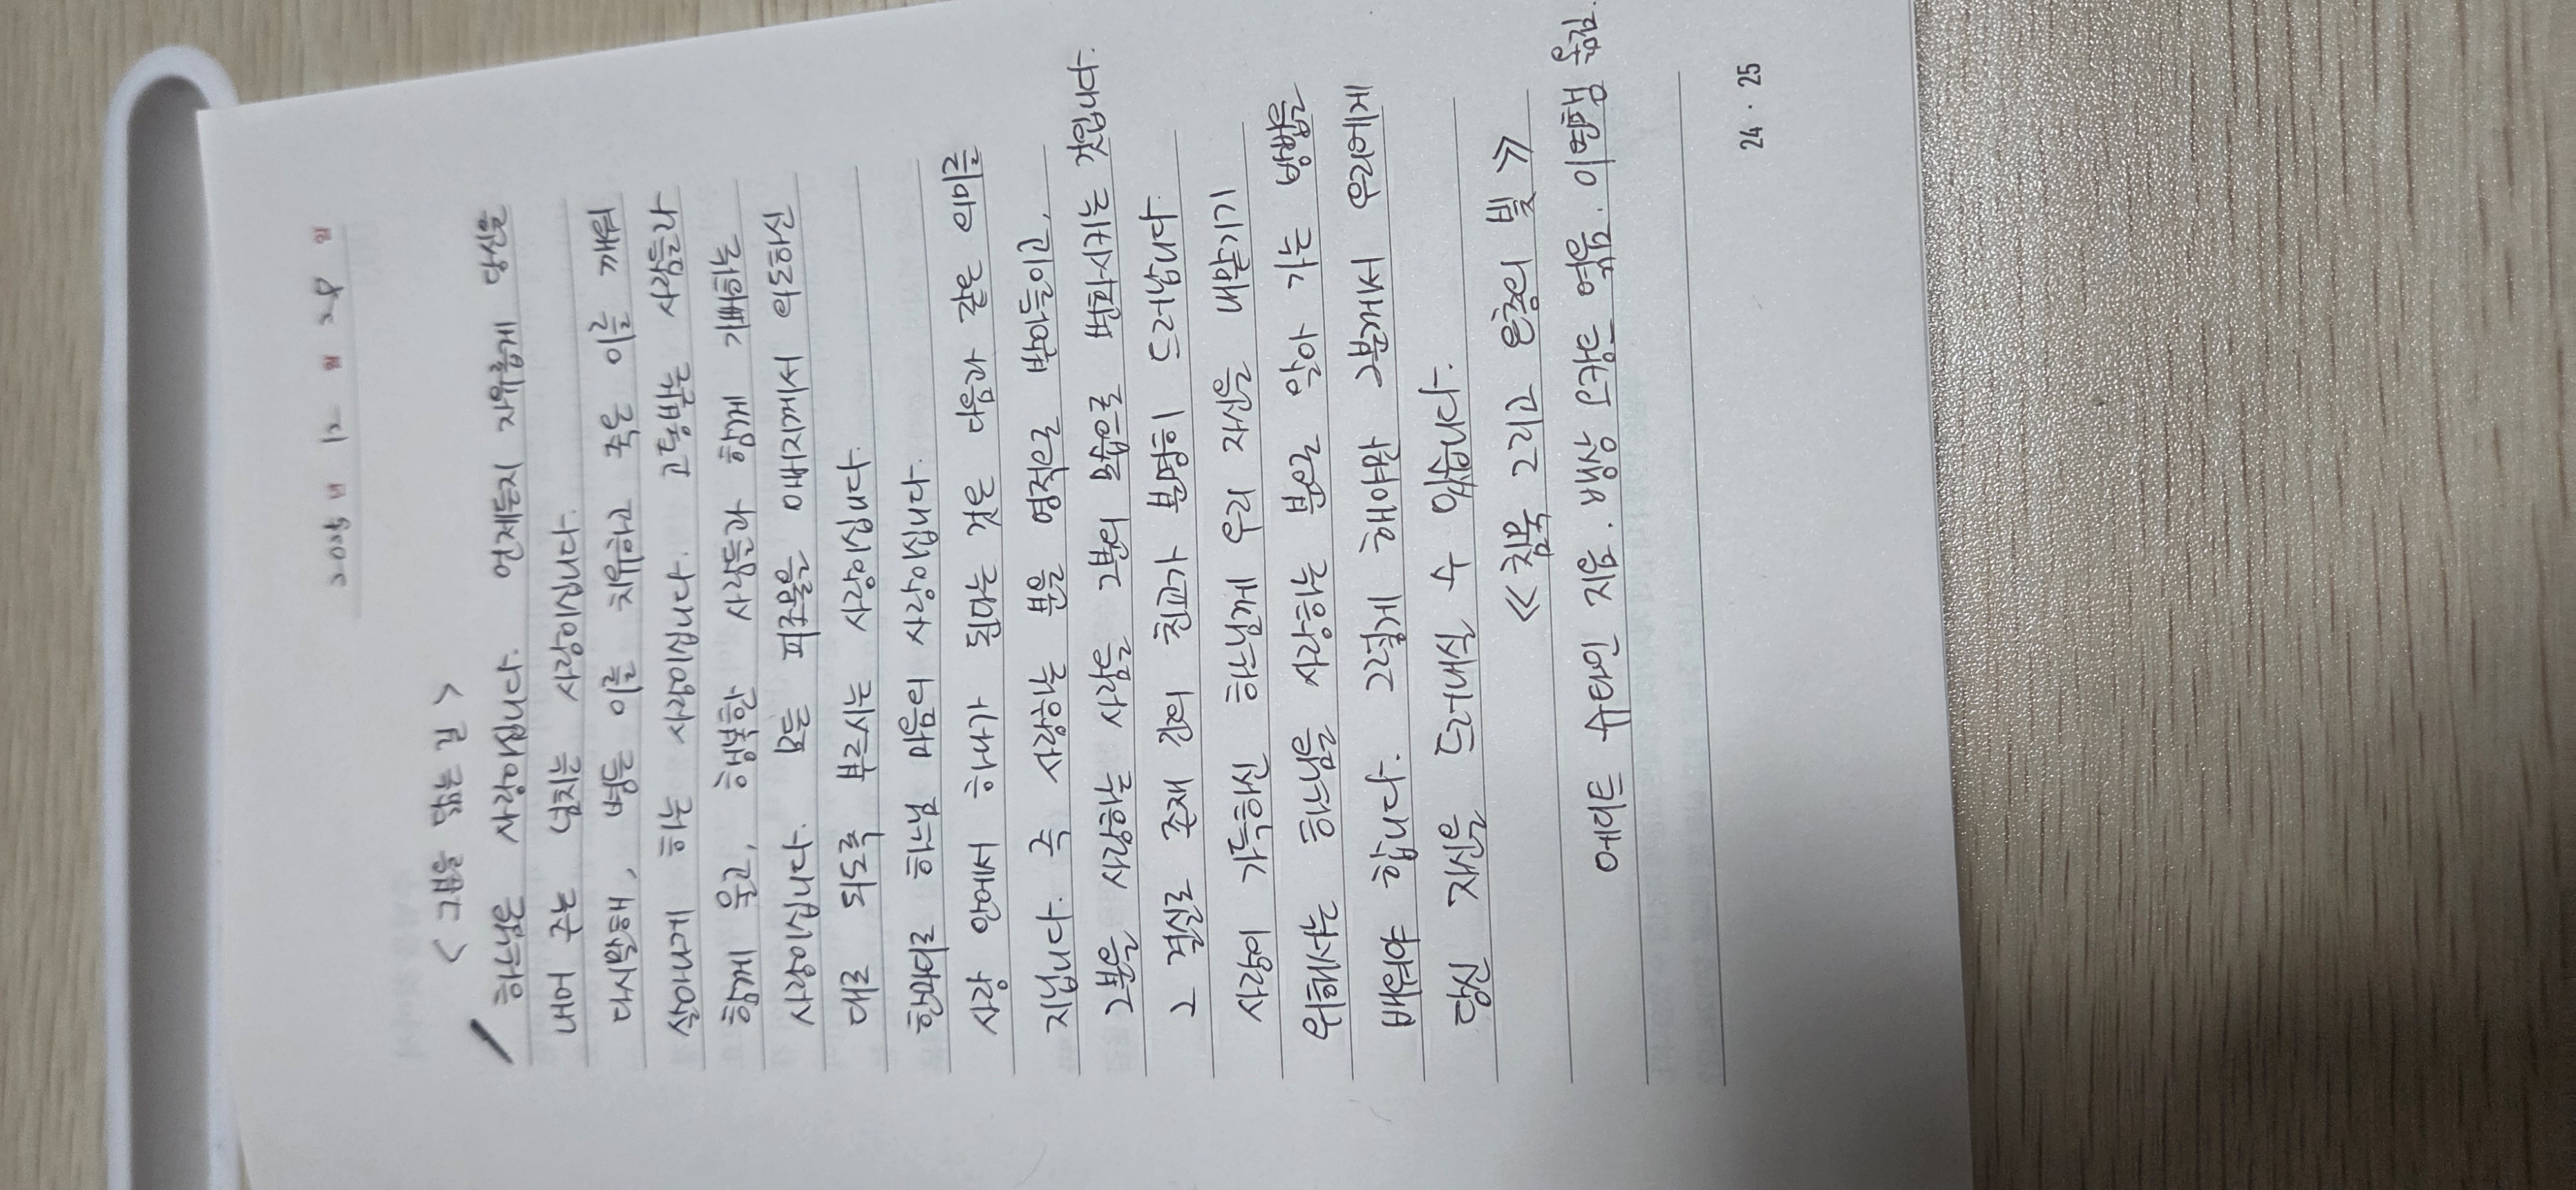 2025년 12월 28일
< 그분을 따름 >
하느님은 사랑이십니다. 언제든지 자유롭게 당신을
내어 주는 넘치는 사랑이십니다.
다시말해, 병든 이를 치유하고 죽은 이를 깨워
살아나게 하는 사랑이십니다. 고통받는 사람들과
함께 울고, 행복한 사람들과 함께 기뻐하는
사랑이십니다. 만물을 아버지께서 의도하신
대로 되도록 부르시는 사랑이십니다.
한마디로 하느님 마음의 사랑이십니다.
사랑 안에서 하나가 된다는 것은 다음과 같은 의미를
지닙니다. 즉 사랑하는 분을 영적으로 받아들이고,
그분을 사랑하는 사람을 그분의 모습으로 변화시키는 것입니다.
그 결실로 존재 간의 친교가 분명히 드러납니다.
사랑이 가득하신 하느님께 우리 자신을 내맡기기
위해서는 하느님을 사랑하는 분으로 알아 가는 방법을
배워야 합니다. 그렇게 해야만 그분께서 우리에게
당신 자신을 드러내실 수 있습니다.
《 침묵 그리고 은총의 빛 》
에디트 슈타인 지음. 뱅상 오캉트 엮음. 이연행 옮김.
24 · 25